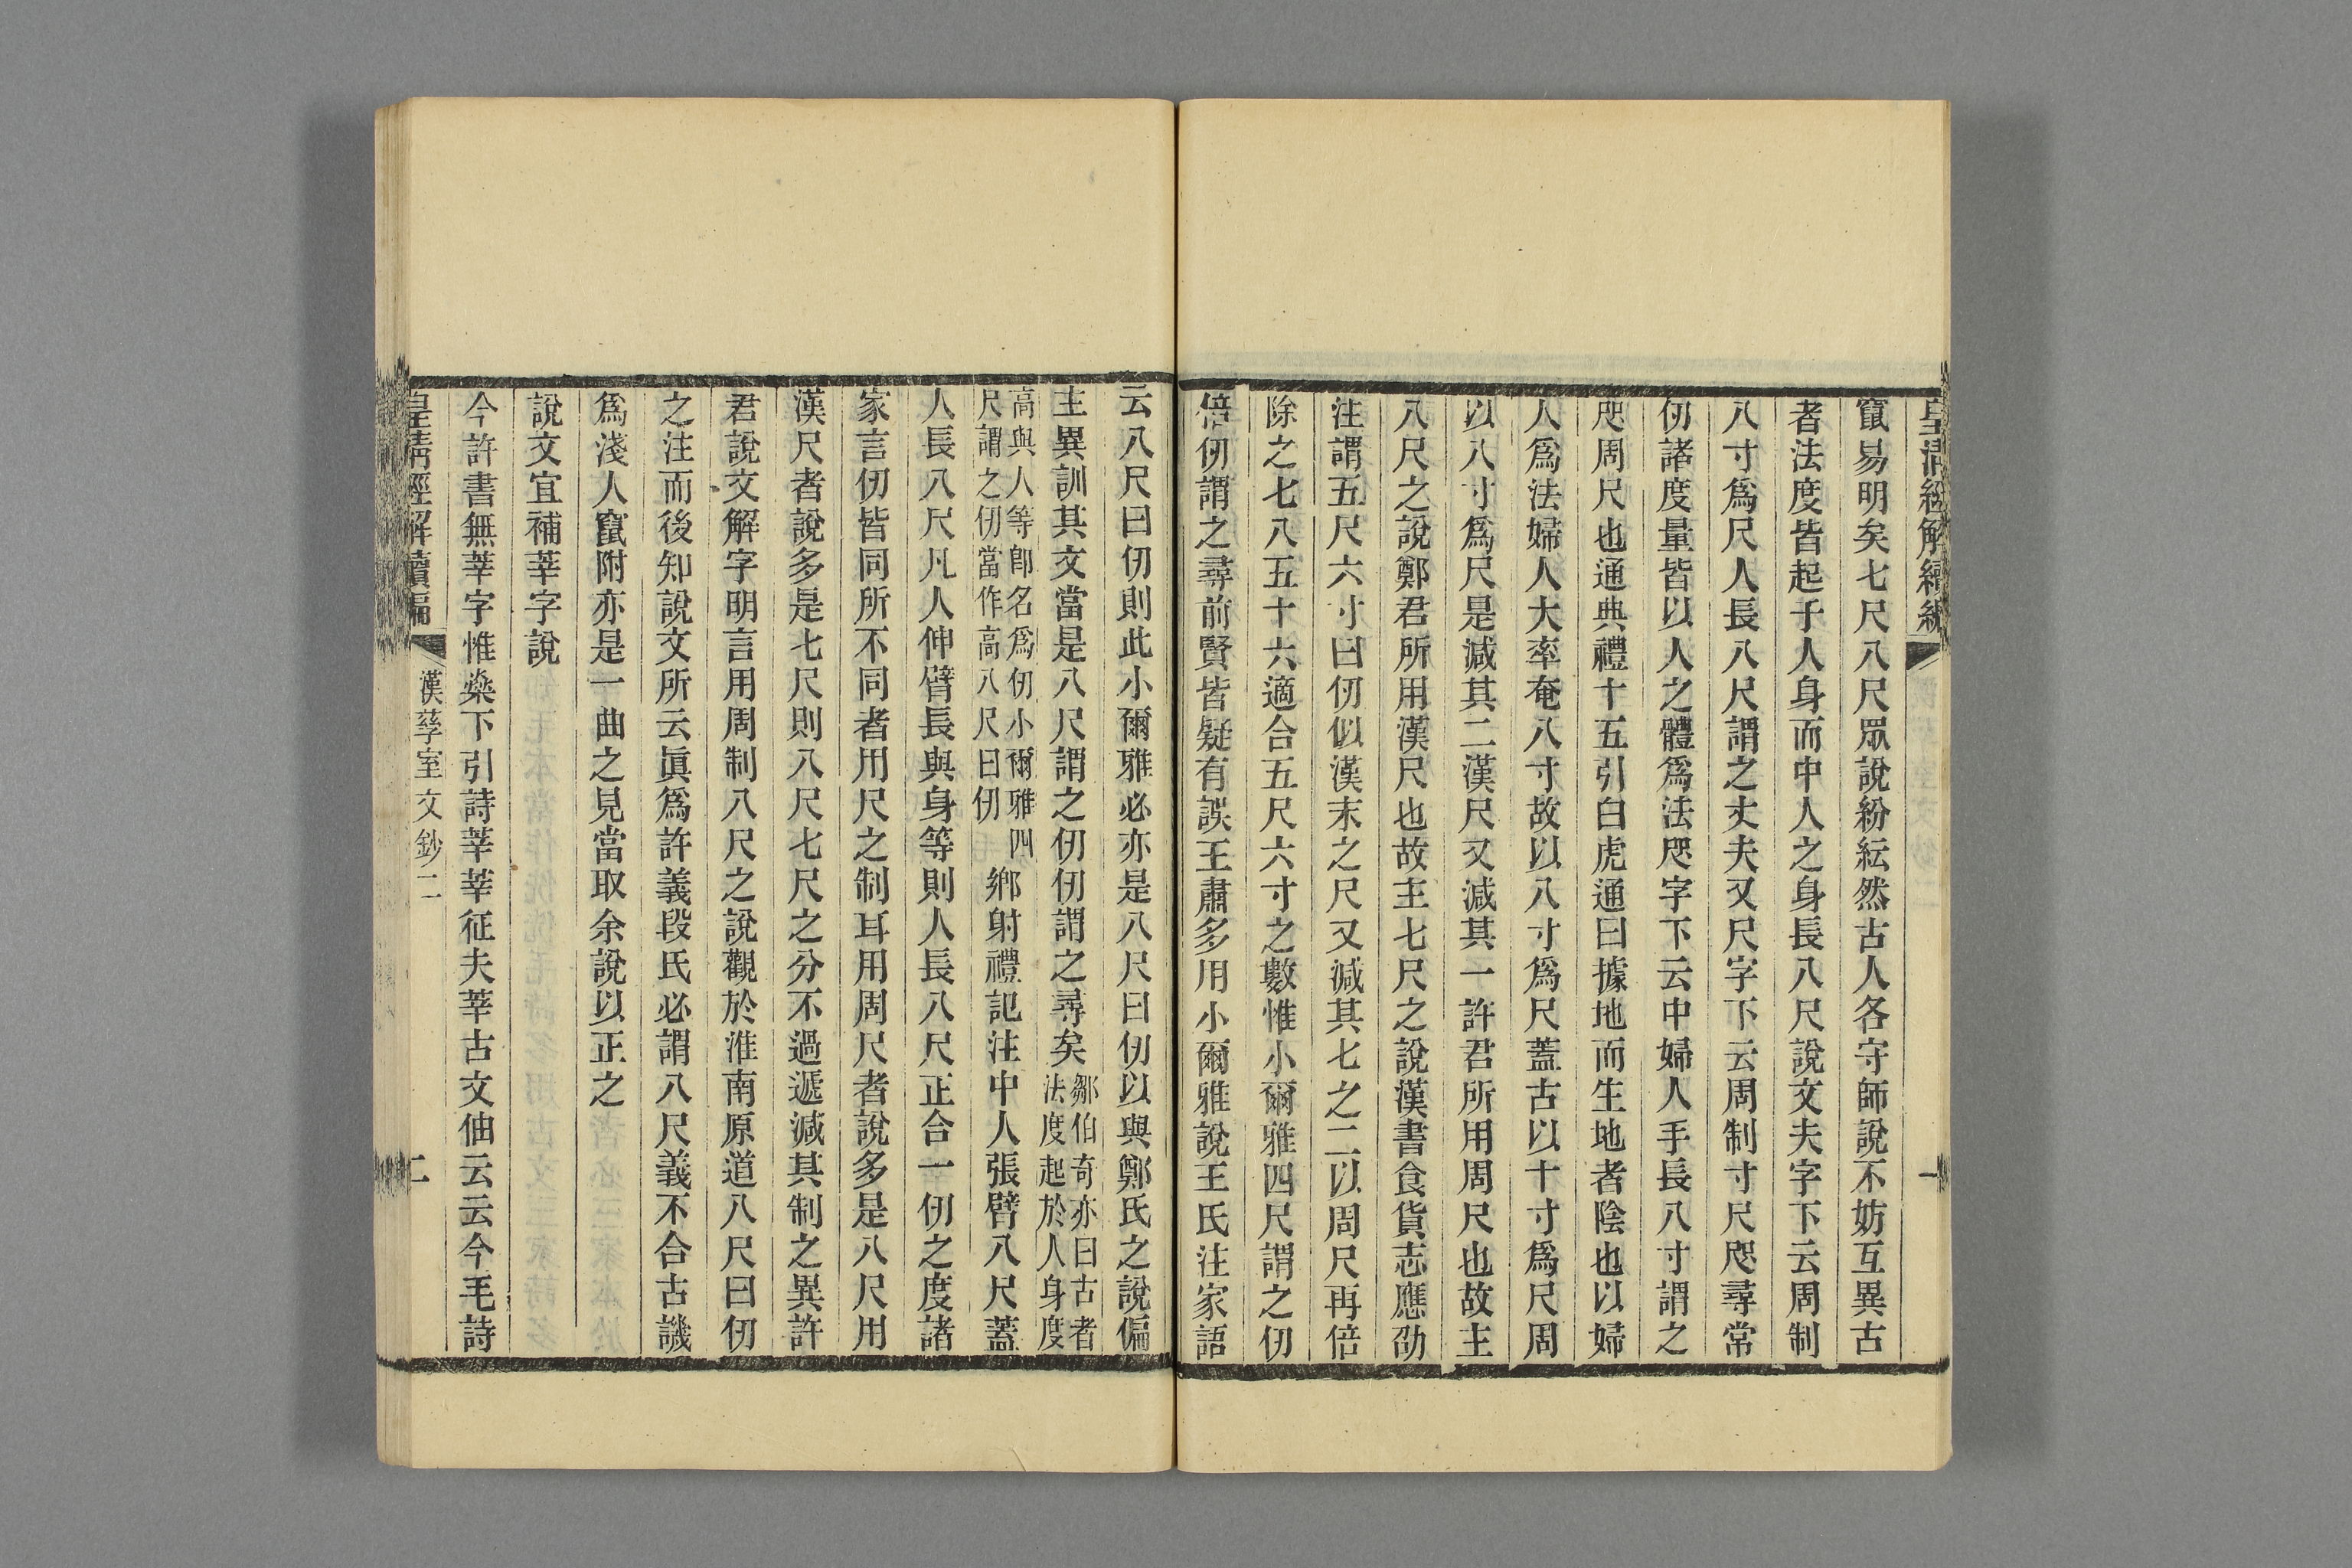 皇清經解續編
一
竄易明矣七尺八尺眾說紛紜然古人各守師說不妨互異古
者法度皆起于人身而中人之身長八尺說文夫字下云周制
八寸爲尺人長八尺謂之丈夫又尺字下云周制寸尺咫尋常
仞諸度量皆以人之體爲法咫字下云中婦人手長八寸謂之
咫周尺也通典禮十五引白虎通曰據地而生地者陰也以婦
人爲法婦人大率奄八寸故以八寸爲尺蓋古以十寸爲尺周
以八寸爲尺是減其二漢尺又減其一許君所用周尺也故主
八尺之說鄭君所用漢尺也故主七尺之說漢書食貨志應劭
注謂五尺六寸曰仞似漢末之尺又減其七之二以周尺再倍
除之七八五十六適合五尺六寸之數惟小爾雅四尺謂之仞
倍仞謂之尋前賢皆疑有誤王肅多用小爾雅說王氏注家語
云八尺曰仞則此小爾雅必亦是八尺曰仞以與鄭氏之說偏
主異訓其文當是八尺謂之仞仞謂之尋矣鄒伯奇亦曰古者法度起於人身度
高與人等卽名爲仞小爾雅四尺謂之仞當作高八尺曰仞鄉射禮記注中人張臂八尺蓋
人長八尺凡人伸臂長與身等則人長八尺正合一仞之度諸
家言仞皆同所不同者用尺之制耳用周尺者說多是八尺用
漢尺者說多是七尺則八尺七尺之分不過遞減其制之異許
君說文解字明言用周制八尺之說觀於淮南原道八尺曰仞
之注而後知說文所云眞爲許義段氏必謂八尺義不合古譏
爲淺人竄附亦是一曲之見當取余說以正之
說文宜補莘字說
今許書無莘字惟燊下引詩莘莘征夫莘古文伷云云今毛詩
皇清經解續編
漢孳室文鈔二
二